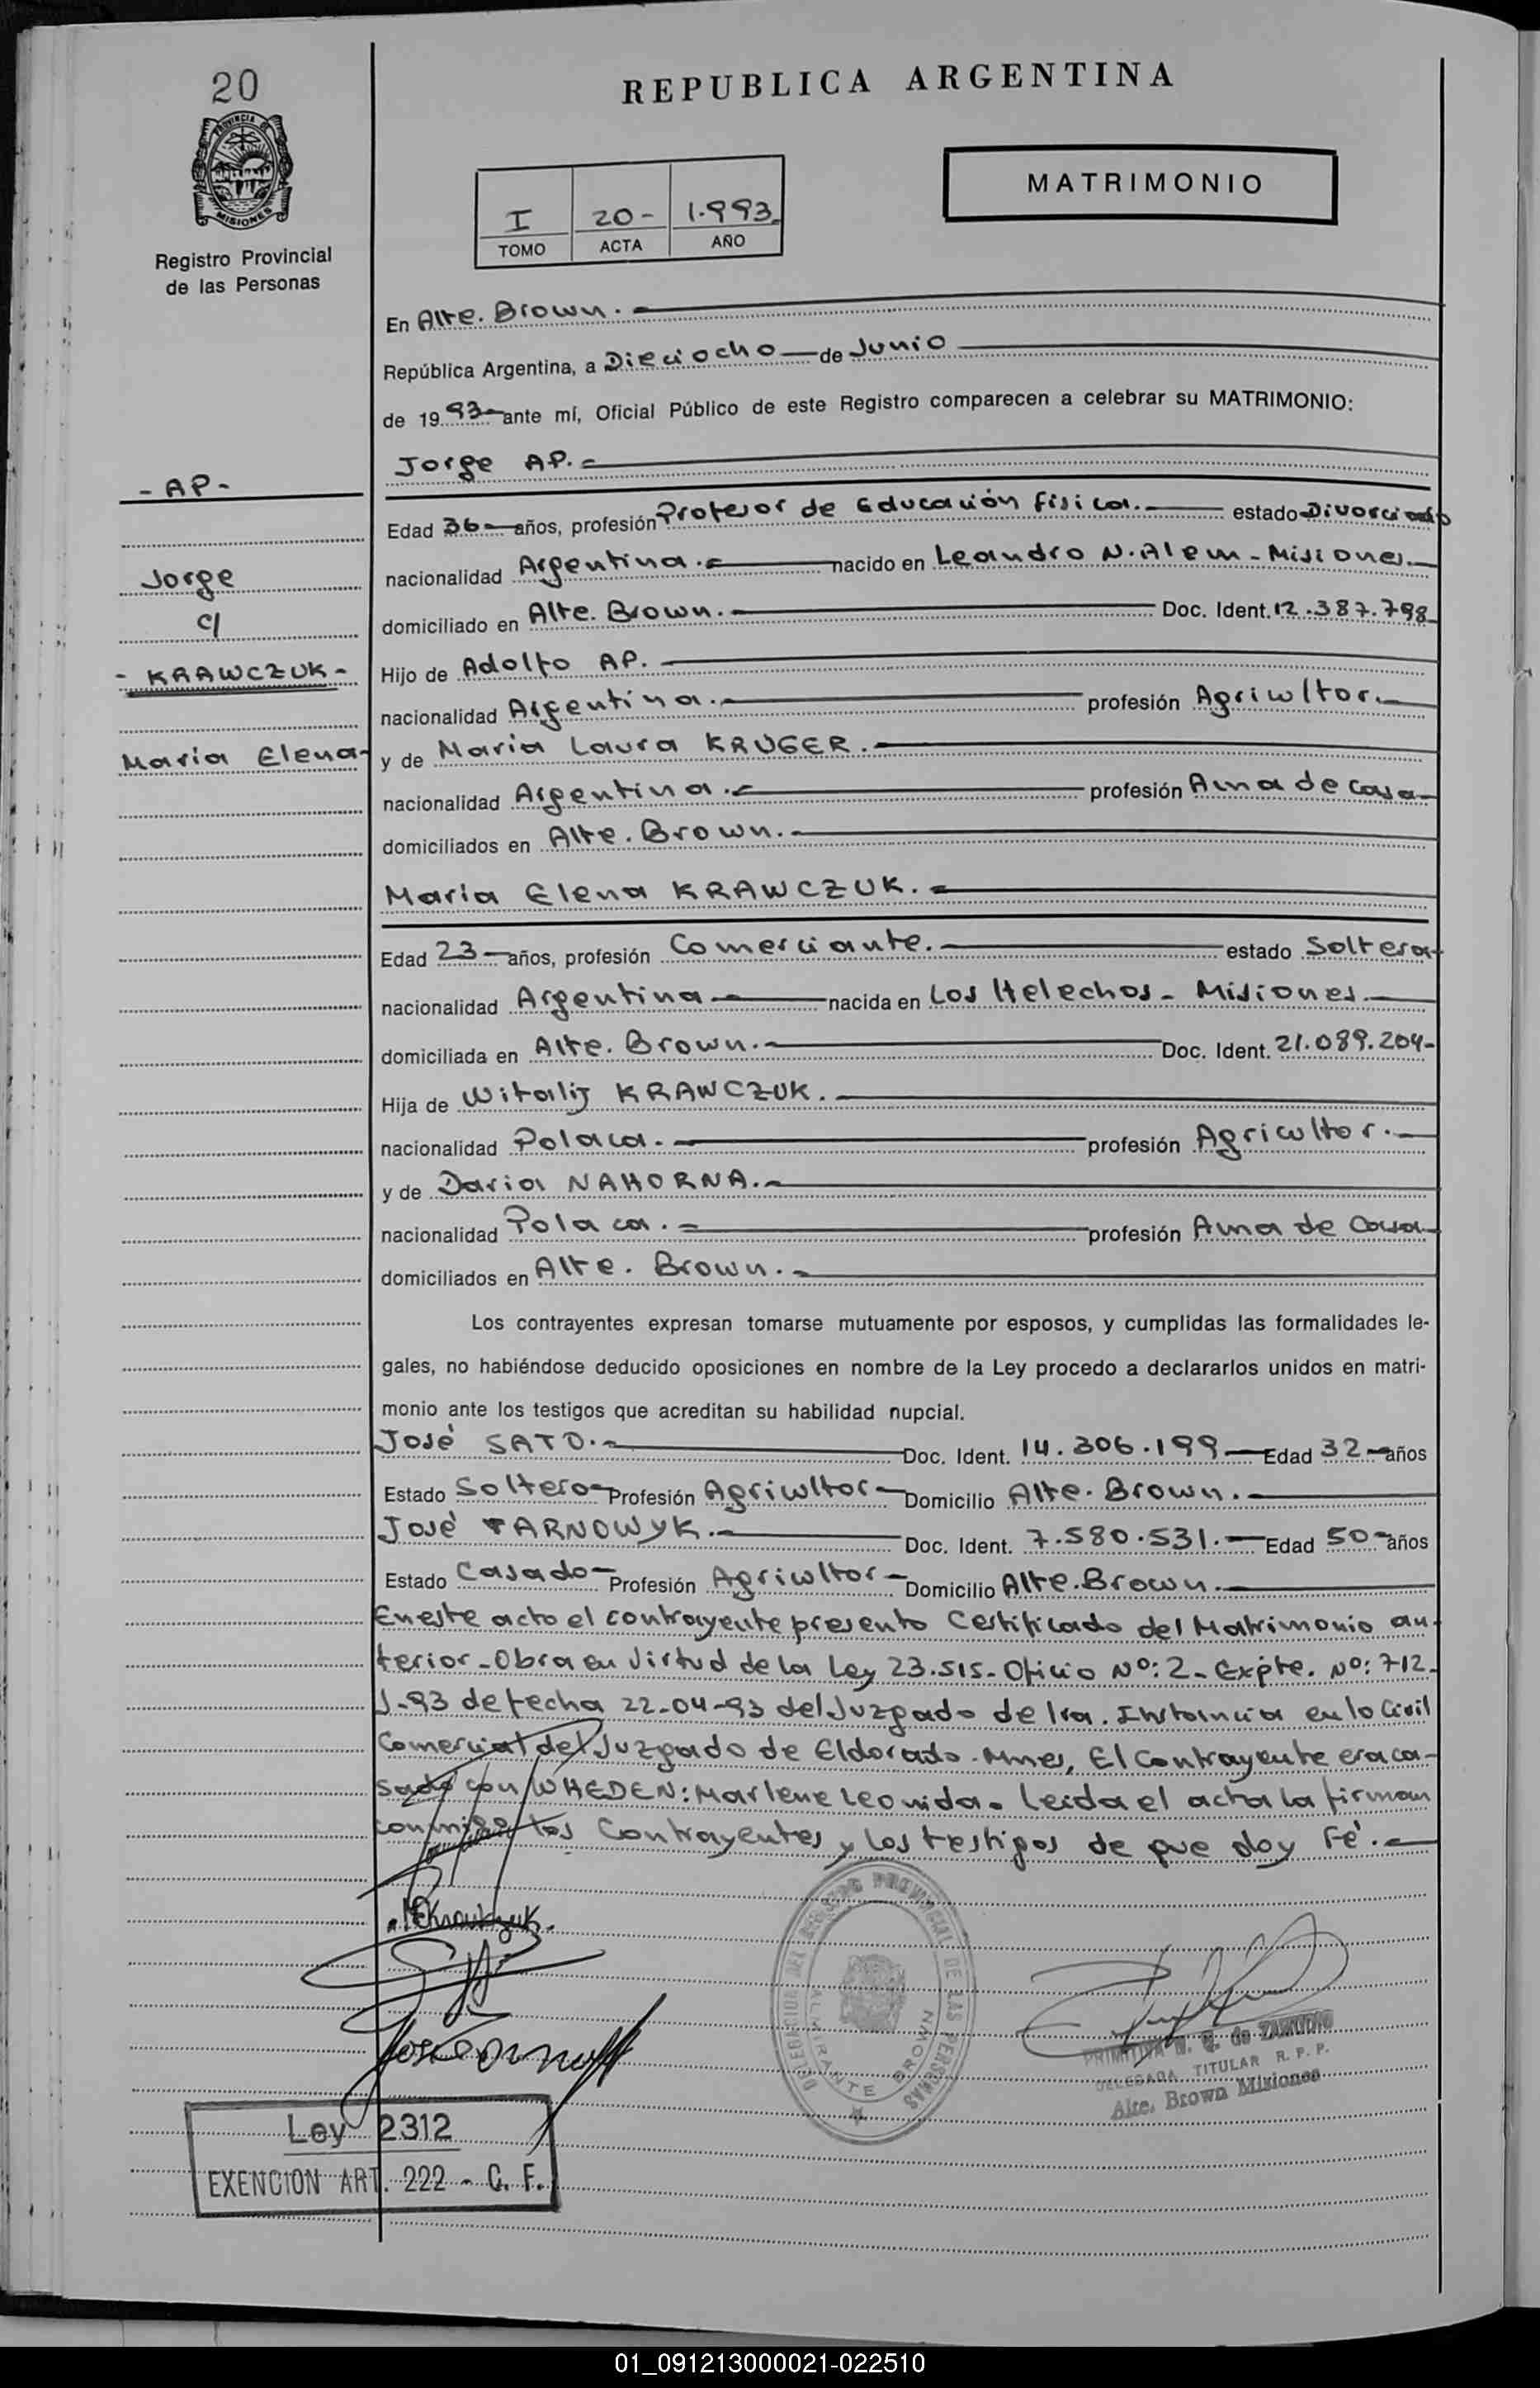 20
PROVINCIA DE
MISIONES
Registro Provincial
de las Personas
REPUBLICA ARGENTINA
MATRIMONIO
I 20- 1.993
TOMO ACTA AÑO
En Alte. Brown.
República Argentina, a Dieciocho de Junio
de 1993 ante mí, Oficial Público de este Registro comparecen a celebrar su MATRIMONIO:
Jorge AP.
- AP -
Jorge
c/
- KRAWCZUK -
Maria Elena
Edad 36 años, profesión Profesor de Educación Física. estado Divorciado
nacionalidad Argentina. nacido en Leandro N. Alem - Misiones.
domiciliado en Alte. Brown. Doc. Ident. 12.387.798
Hijo de Adolfo AP.
nacionalidad Argentina. profesión Agricultor.
y de Maria Laura KRUGER.
nacionalidad Argentina. profesión Ama de casa
domiciliados en Alte. Brown.
Maria Elena KRAWCZUK.
Edad 23 años, profesión Comerciante. estado Soltera
nacionalidad Argentina nacida en Los Helechos - Misiones
domiciliada en Alte. Brown. Doc. Ident. 21.089.204-
Hija de Witalij KRAWCZUK.
nacionalidad Polaca. profesión Agricultor.
y de Daria NAHORNA.
nacionalidad Polaca. profesión Ama de Casa
domiciliados en Alte. Brown.
Los contrayentes expresan tomarse mutuamente por esposos, y cumplidas las formalidades le-
gales, no habiéndose deducido oposiciones en nombre de la Ley procedo a declararlos unidos en matri-
monio ante los testigos que acreditan su habilidad nupcial.
José SATO. Doc. Ident. 14.306.199 Edad 32 años
Estado Soltero Profesión Agricultor Domicilio Alte. Brown.
José TARNOWYK. Doc. Ident. 7.580.531. Edad 50 años
Estado Casado Profesión Agricultor Domicilio Alte. Brown.
En este acto el contrayente presento Certificado del Matrimonio an-
terior - Obra en Virtud de la Ley 23.515 - Oficio Nº: 2 - Expte. Nº: 712
J-93 de fecha 22-04-93 del Juzgado de 1ra. Instancia en lo Civil
Comercial del Juzgado de Eldorado - Mnes, El Contrayente era ca-
sado con WHEDEN: Marlene Leonida. Leida el acta la firman
conmigo los Contrayentes y los testigos de que doy Fé.
DELEGACION DEL REGISTRO PROVINCIAL DE LAS PERSONAS
ALMIRANTE BROWN
de ZAMUDIO
DELEGADA TITULAR R. P. P.
Alte. Brown Misiones
Ley 2312
EXENCION ART. 222 - C. F.
01_091213000021-022510